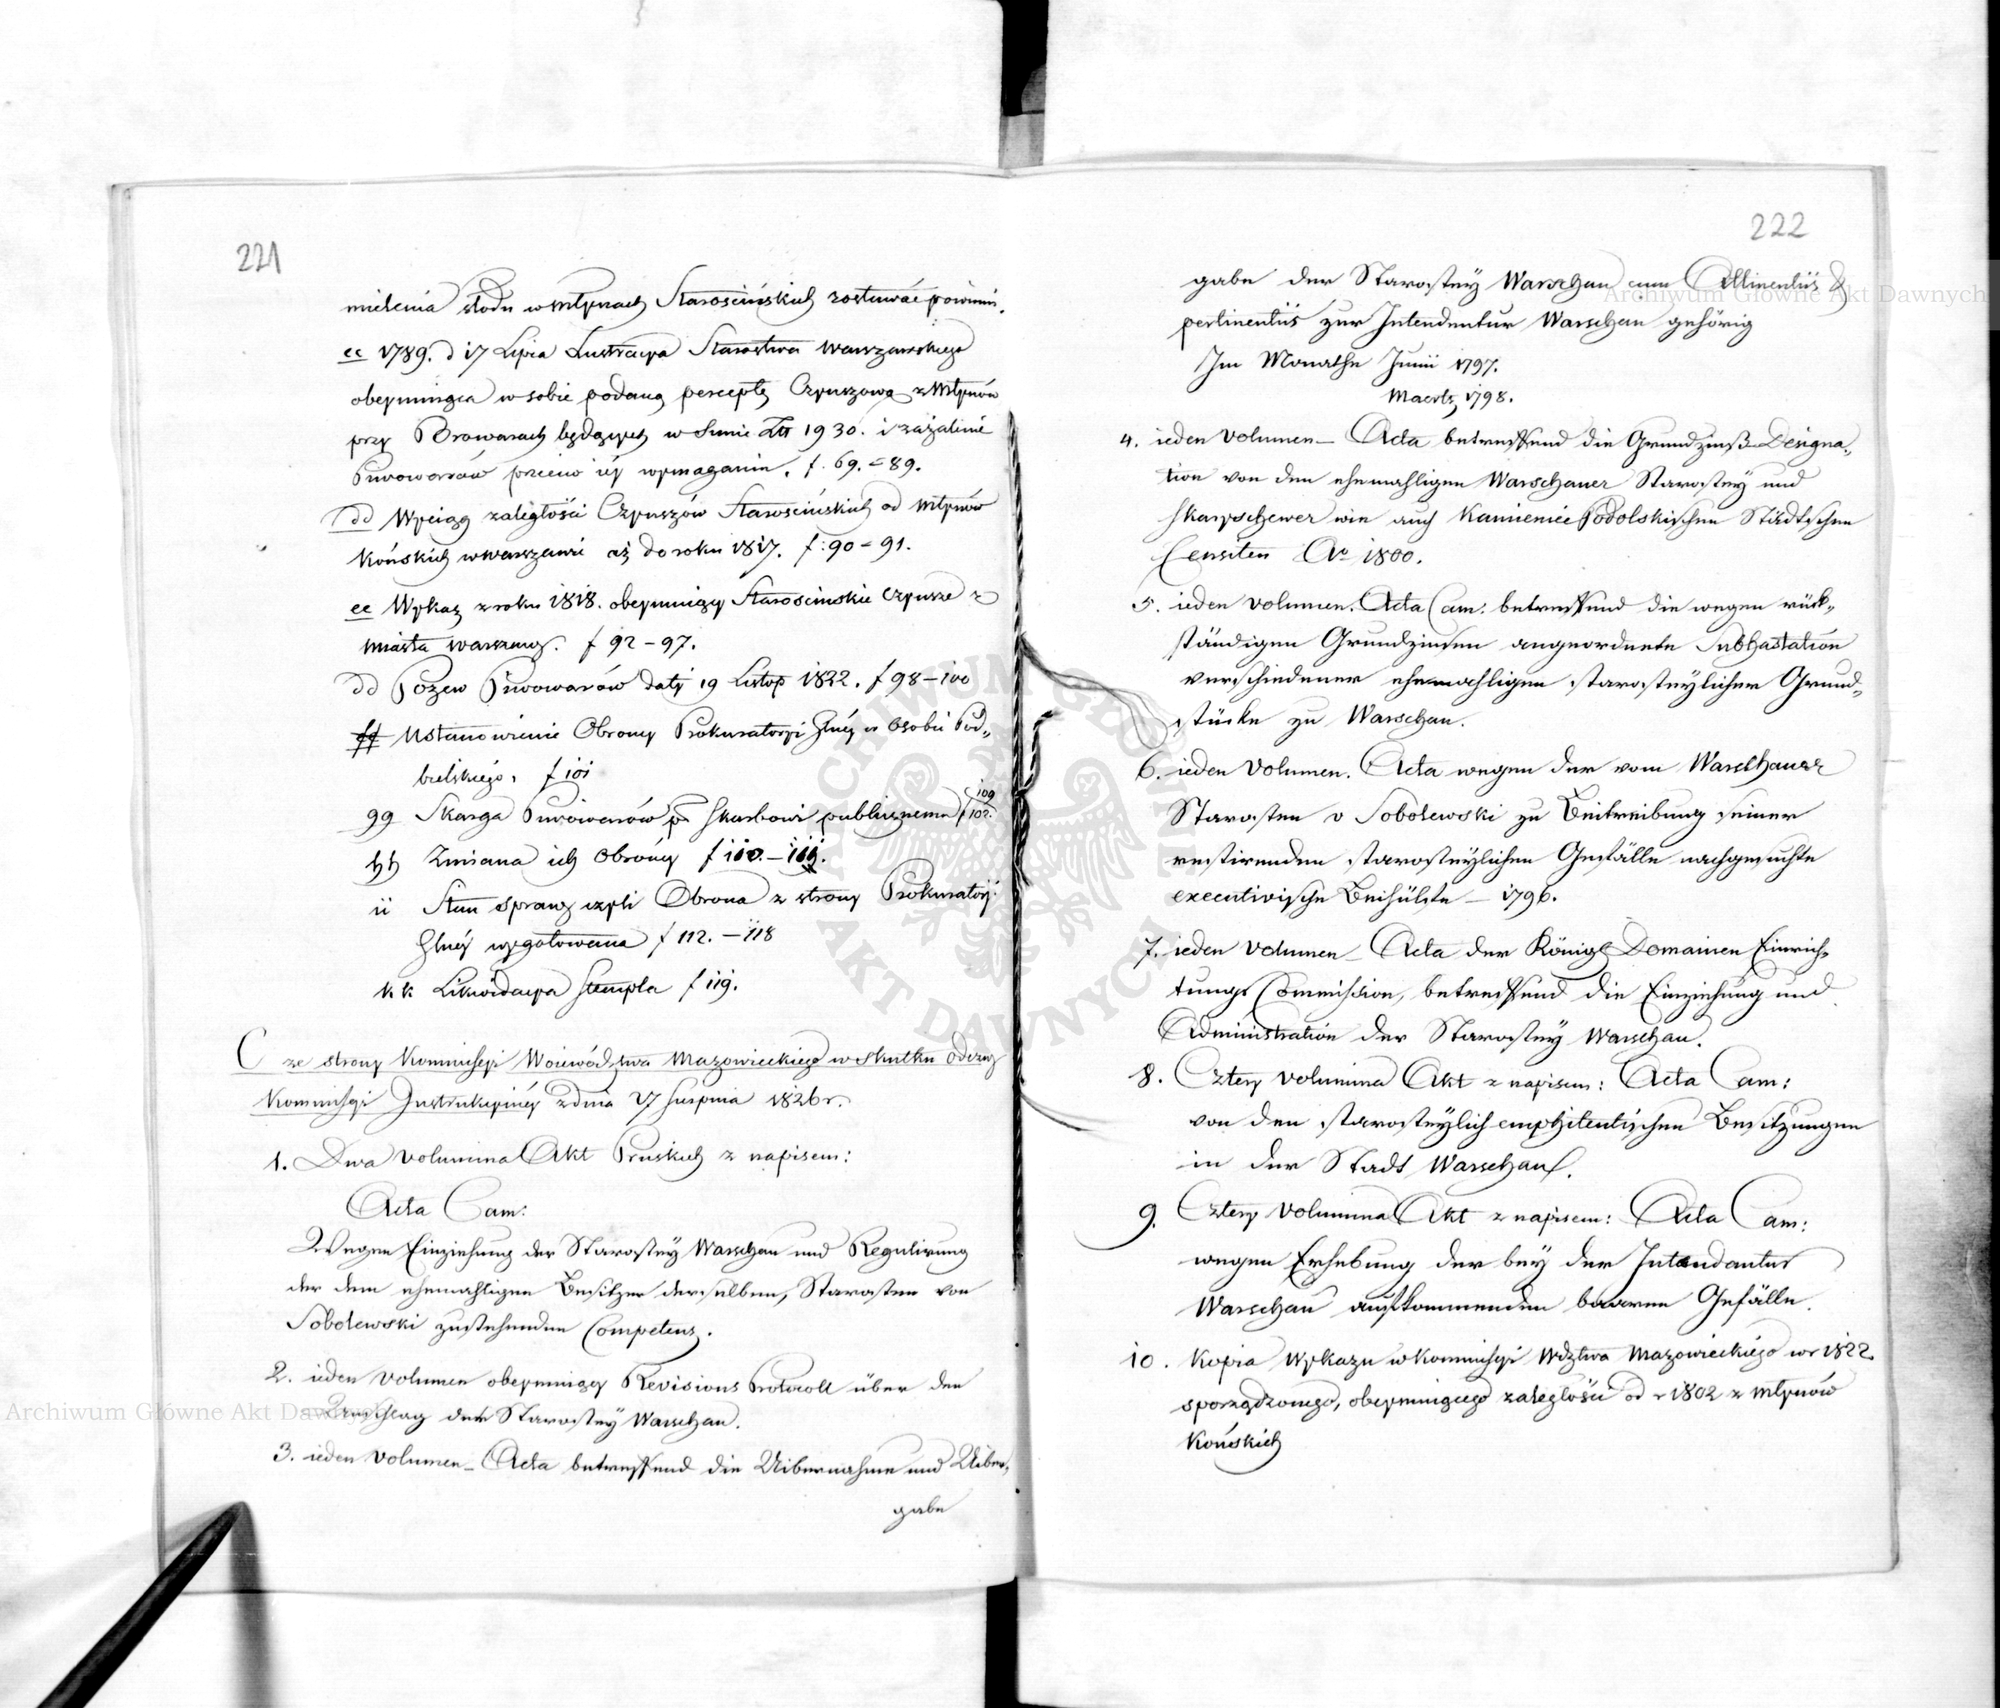 221
mielenia słodu w młynach Starościńskich zostawać powinni.
cc 1789. d 17 Lipca Lustracya Starostwa Warszawskiego
obeymuiąca w sobie podaną perceptę Czynszową z Młynów
przy Browarach będących w Sumie Złt 1930. i zażalenie
Piwowarów przeciw iéy wymaganiu. f. 69. = 89.
dd Wyciąg zaległości Czynszów Starościńskich od Młynów
Końskich w Warszawie aż do roku 1817. f: 90 = 91.
ee Wykaz z roku 1818. obeymuiący Starościnskie czynsze z
miasta Warszawy. f 92 – 97.
dd Pozew Piwowarów daty 19 Listop 1822. f 98 – 100
ff Ustanowienie Obrony Prokuratoryi Głnéy w Osobie Pod„
bielskiego. f 101
gg Skarga Piwowarów pko Skarbowi publicznemu f 102. 109
hh Zmiana ich Obrony f 110. – 111.
ii Stan sprawy czyli Obrona z strony Prokuratoryi
Głnéy wygotowana f 112. – 118
kk Likwidacya Stempla f 119.
C ze strony Kommissyi Woiewództwa Mazowieckiego w skutku Odezwy
Kommissyi Instrukcyinéy z dnia 27 Sierpnia 1826 r.
1. Dwa Volumina Akt Pruskich z napisem:
Acta Cam:
Wegen Einziehung der Starostey Warschau und Regulirung
der dem ehemahligen Besitzer derselben, Starosten von
Sobolewski zustehenden Competenz.
2. ieden Volumen obeymuiący Revisions Protocoll über den
Anschlag der Starostey Warschau.
3. ieden Volumen – Acta betreffend die Uibernahme und Uiber„
gabe
222
gabe der Starostey Warschau cum Attinentiis &
pertinentiis zur Intendentur Warschau gehörig
Im Monathe Junii 1797.
Maertz 1798.
4. ieden Volumen – Acta betreffend die Grundzinß Designa„
tion von den ehemahligen Warschauer Starostey und
Skarpschewer wie auch Kamieniec Podolskischen Städtschen
Censiten Ao 1800.
5. ieden Volumen. Acta Cam: betreffend die wegen rück„
ständigen Grundzinsen angeordnete Subhastation
verschiedener ehemahligen starosteylicher Grund„
stücke zu Warschau.
6. ieden Volumen. Acta wegen der vom Warschauer
Starosten v Sobolewski zu Beitreibung seiner
restirenden starosteylichen Gefälle nachgesuchte
executivische Beihülfte – 1796.
7. ieden Volumen – Acta der Königl Domainen Einrich„
tungs Commission, betreffend die Einziehung und
Administration der Starostey Warschau.
8. Cztery Volumina Akt z napisem: Acta Cam:
von den starosteylich emphiteutischen Besitzungen
in der Stadt Warschau.
9. Cztery Volumina Akt z napisem: Acta Cam:
wegen Erhebung der bey der Intendantur
Warschau aufkommenden baaren Gefälle.
10. Kopia Wykazu w Kommissyi Wdztwa Mazowieckiego w r 1822
sporządzonego, obeymuiącego zaległości od r 1802 z Młynów
Końskich
Archiwum Główne Akt Dawnych
Archiwum Główne Akt Dawnych
ARCHIWUM GŁÓWNE AKT DAWNYCH